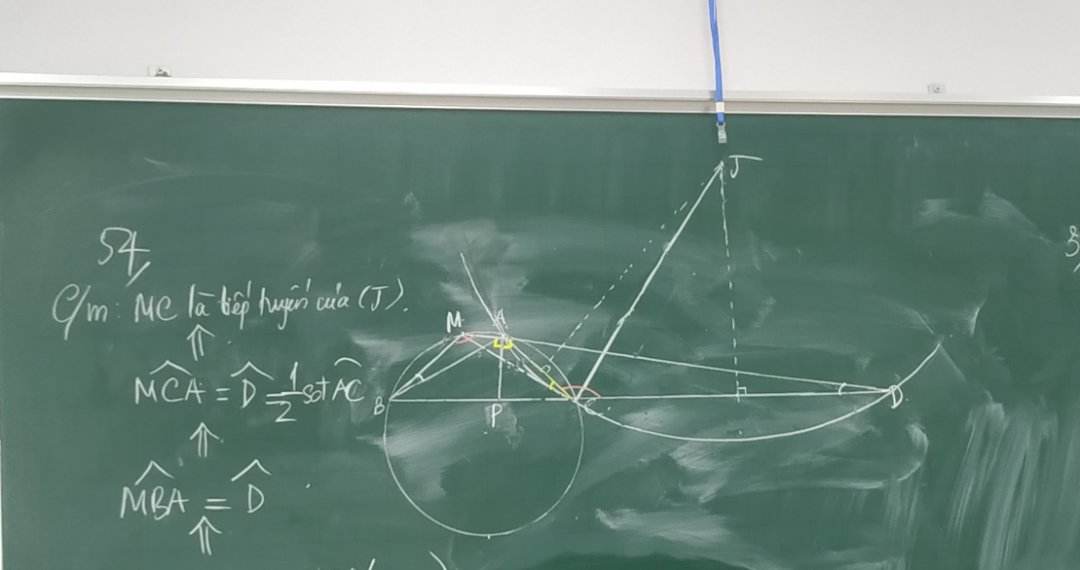 54,
C/m: MC là tiếp tuyến của (J).
⇑
M̂CA = D̂ = 1/2 sđ AC
⇑
M̂BA = D̂
⇑
J
M A
B P C D